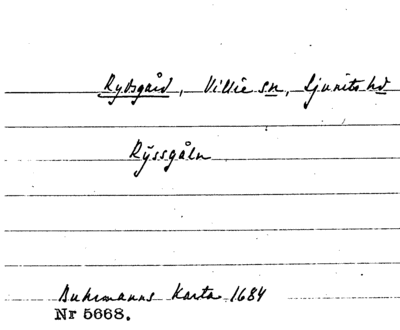 Rydsgård, Villie sn, Ljunits hd
Rÿssgåln
Buhrmanns Karta 1684
Nr 5668.